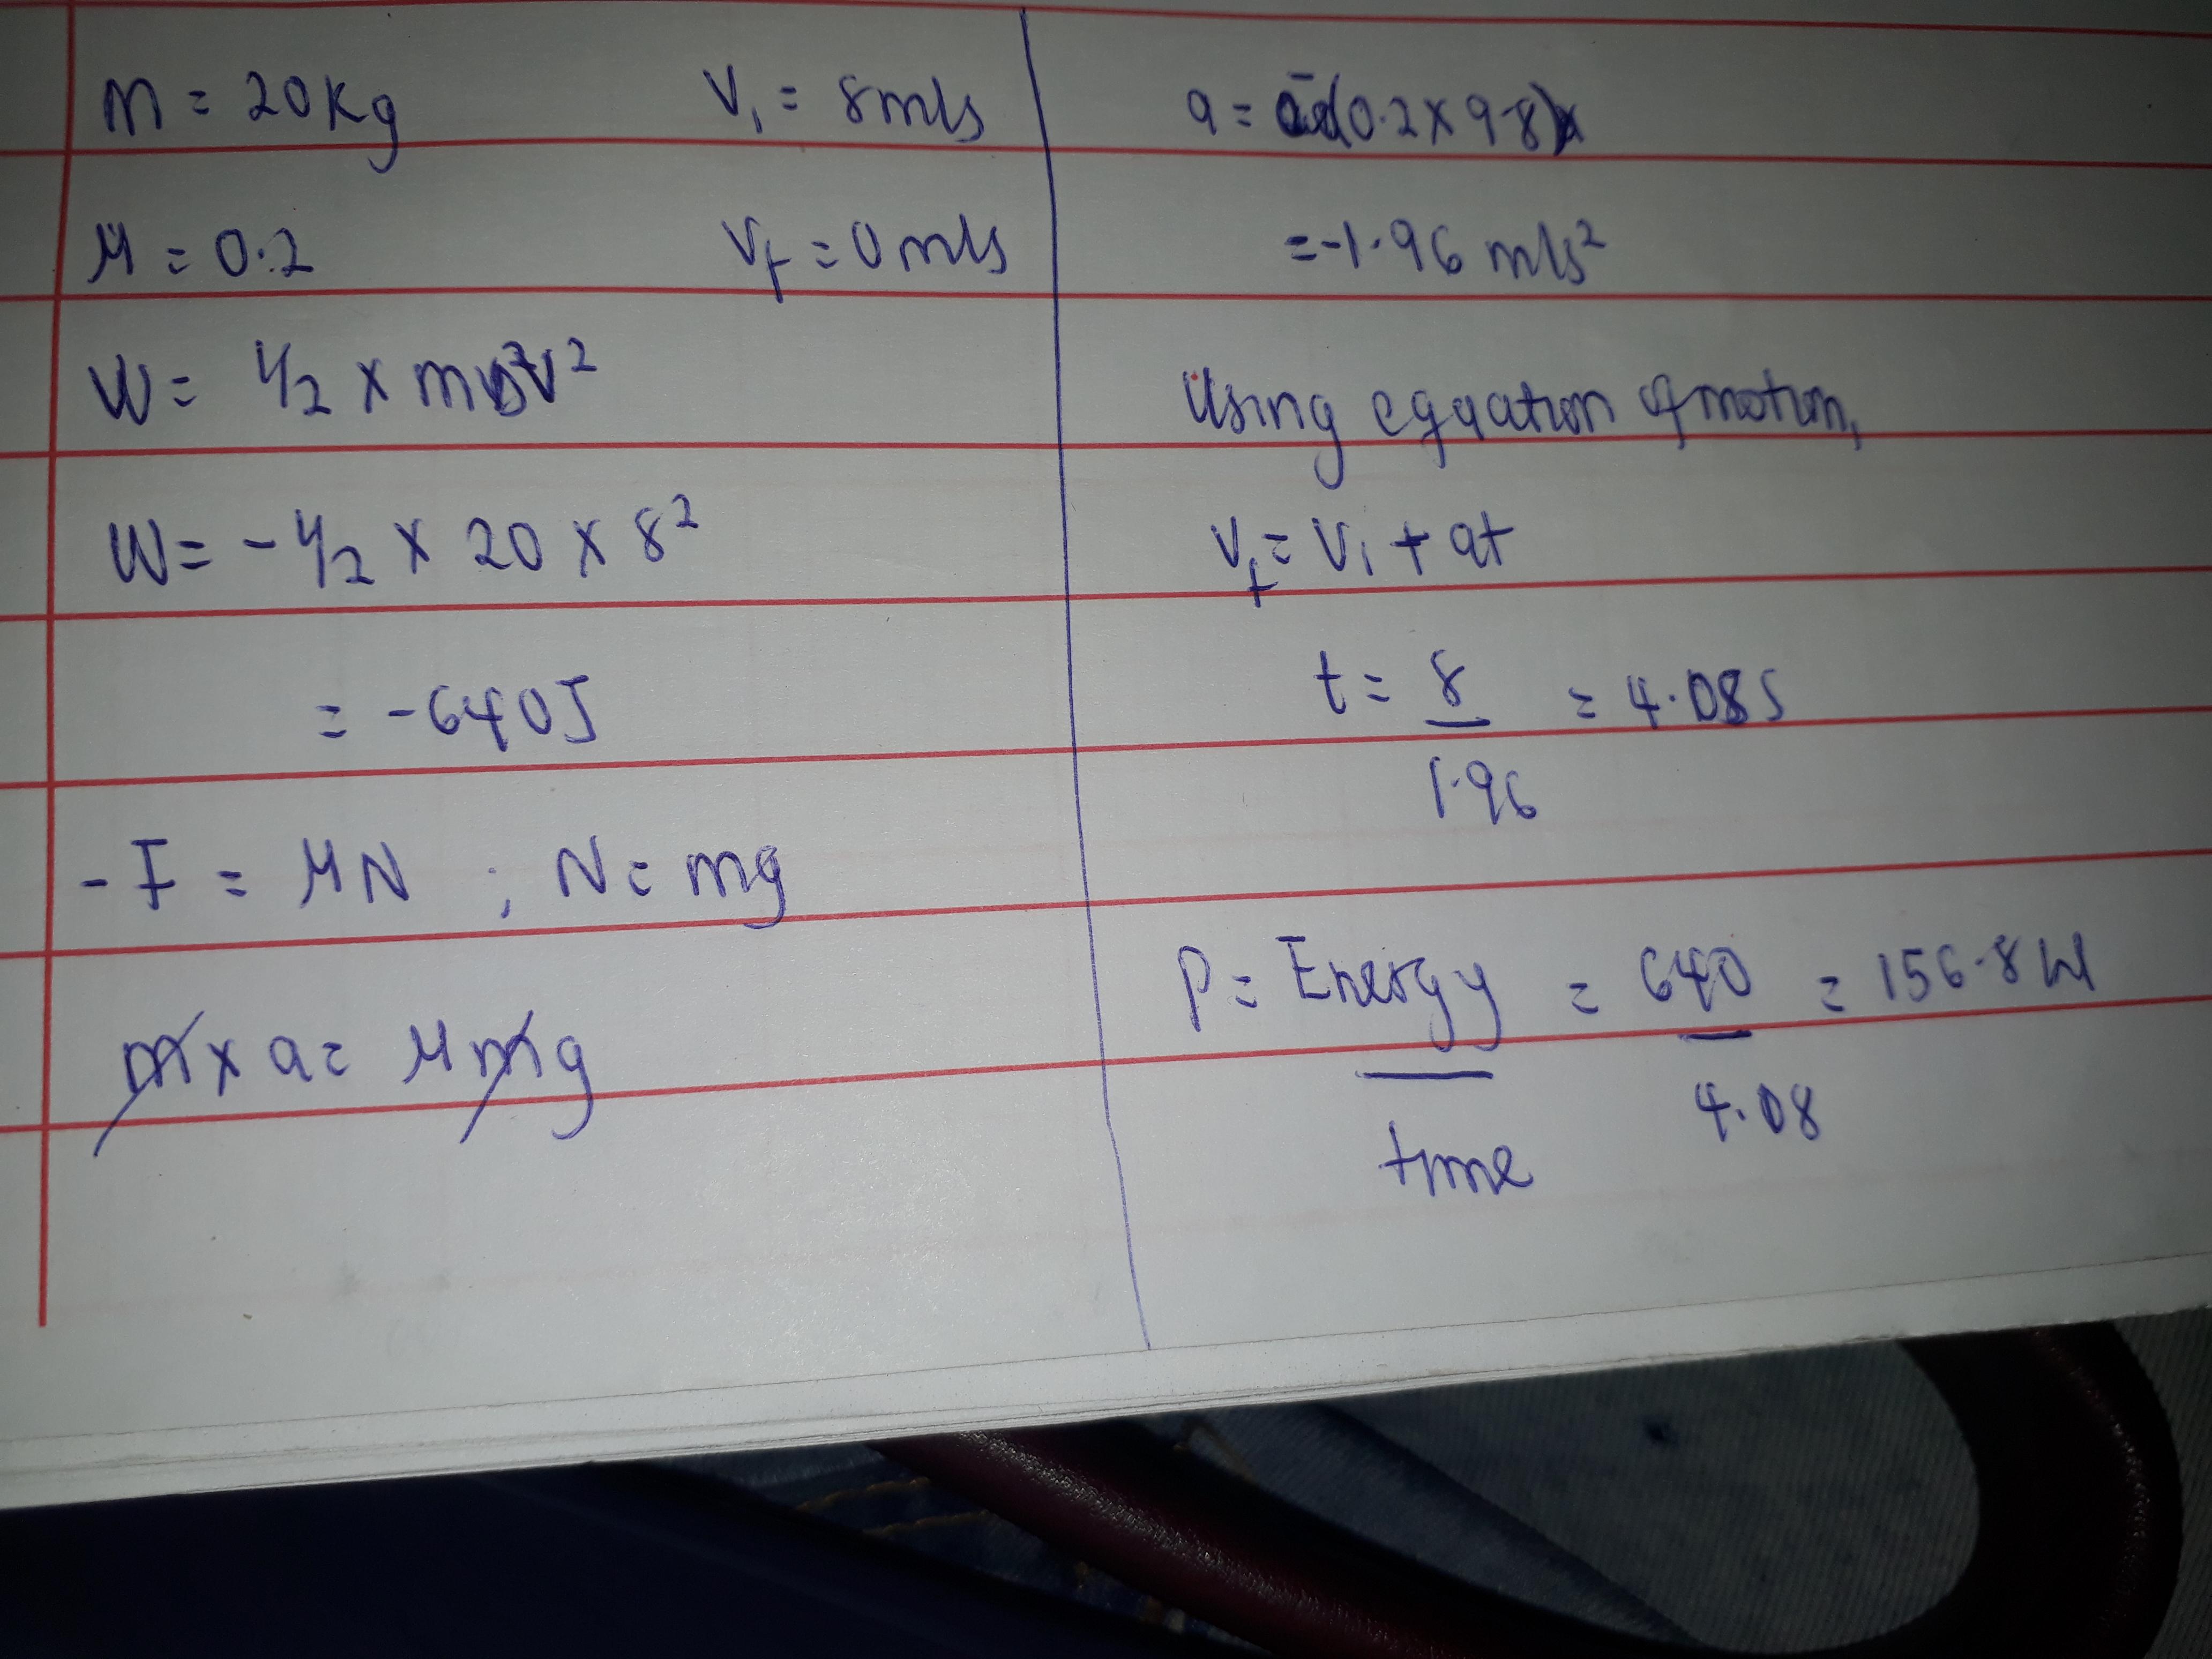 m = 20kg V₁ = 8m/s
μ = 0.2 Vf = 0m/s
W = ½ × mv²
W = -½ × 20 × 8²
= -640J
-F = μN ; N = mg
m × a = μmg
a = -(0.2 × 9.8)
= -1.96 m/s²
Using equation of motion,
Vf = Vi + at
t = 8/1.96 = 4.08s
P = Energy/time = 640/4.08 = 156.8W